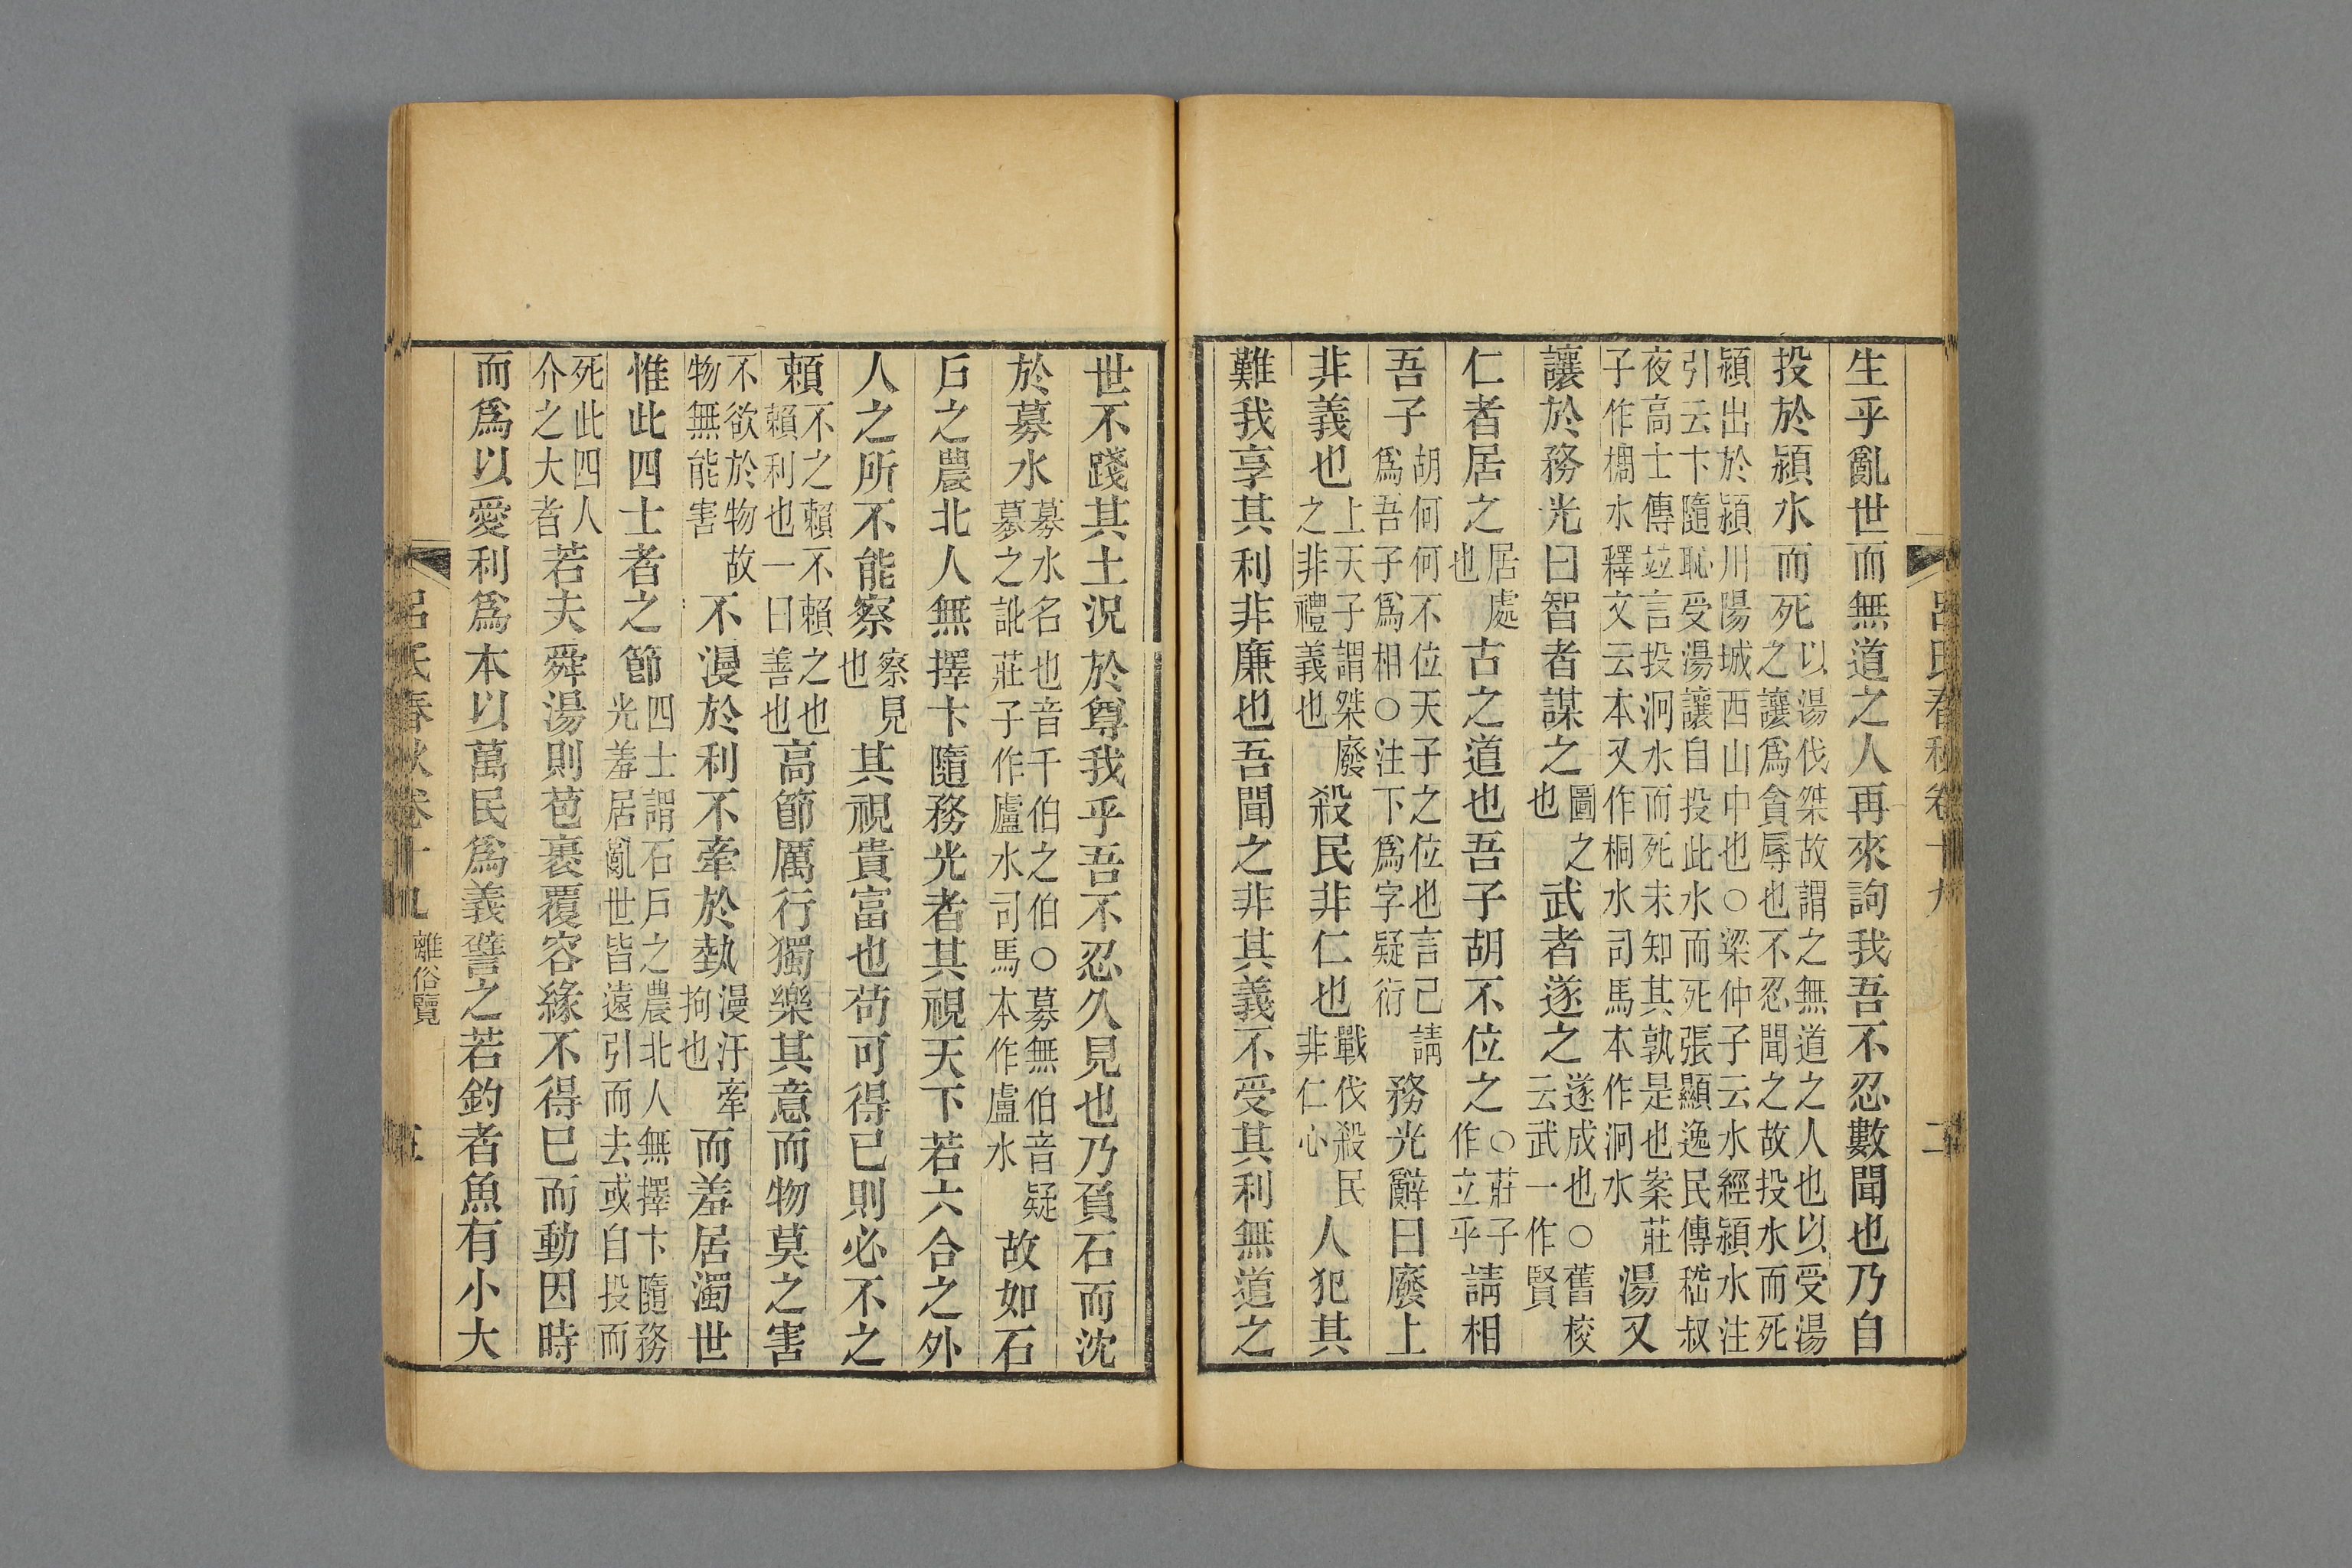 呂氏春秋卷十九 二
生乎亂世而無道之人再來詢我吾不忍數聞也乃自
投於潁水而死以湯伐桀故謂之無道之人也以受湯之讓爲貪辱也不忍聞之故投水而死
潁出於潁川陽城西山中也○梁仲子云水經潁水注引云卞隨恥受湯讓自投此水而死張顯逸民傳嵇叔
夜高士傳竝言投泂水而死未知其孰是也案莊子作椆水釋文云本又作桐水司馬本作泂水湯又
讓於務光曰智者謀之圖之也武者遂之遂成也○舊校云武一作賢
仁者居之居處也古之道也吾子胡不位之○莊子作立乎請相
吾子胡何何不位天子之位也言已請爲吾子爲相○注下爲字疑衍務光辭曰廢上
非義也上天子謂桀廢之非禮義也殺民非仁也戰伐殺民非仁心人犯其
難我享其利非廉也吾聞之非其義不受其利無道之
世不踐其土況於尊我乎吾不忍久見也乃負石而沈
於募水募水名也音千伯之伯○募無伯音疑募之訛莊子作廬水司馬本作盧水故如石
戶之農北人無擇卞隨務光者其視天下若六合之外
人之所不能察察見也其視貴富也苟可得已則必不之
賴不之賴不賴之也賴利也一曰善也高節厲行獨樂其意而物莫之害
不欲於物故物無能害不漫於利不牽於埶漫汙牽拘也而羞居濁世
惟此四士者之節四士謂石戶之農北人無擇卞隨務光羞居亂世皆遠引而去或自投而
死此四人介之大者若夫舜湯則苞裹覆容緣不得已而動因時
而爲以愛利爲本以萬民爲義譬之若釣者魚有小大
呂氏春秋卷十九 離俗覽